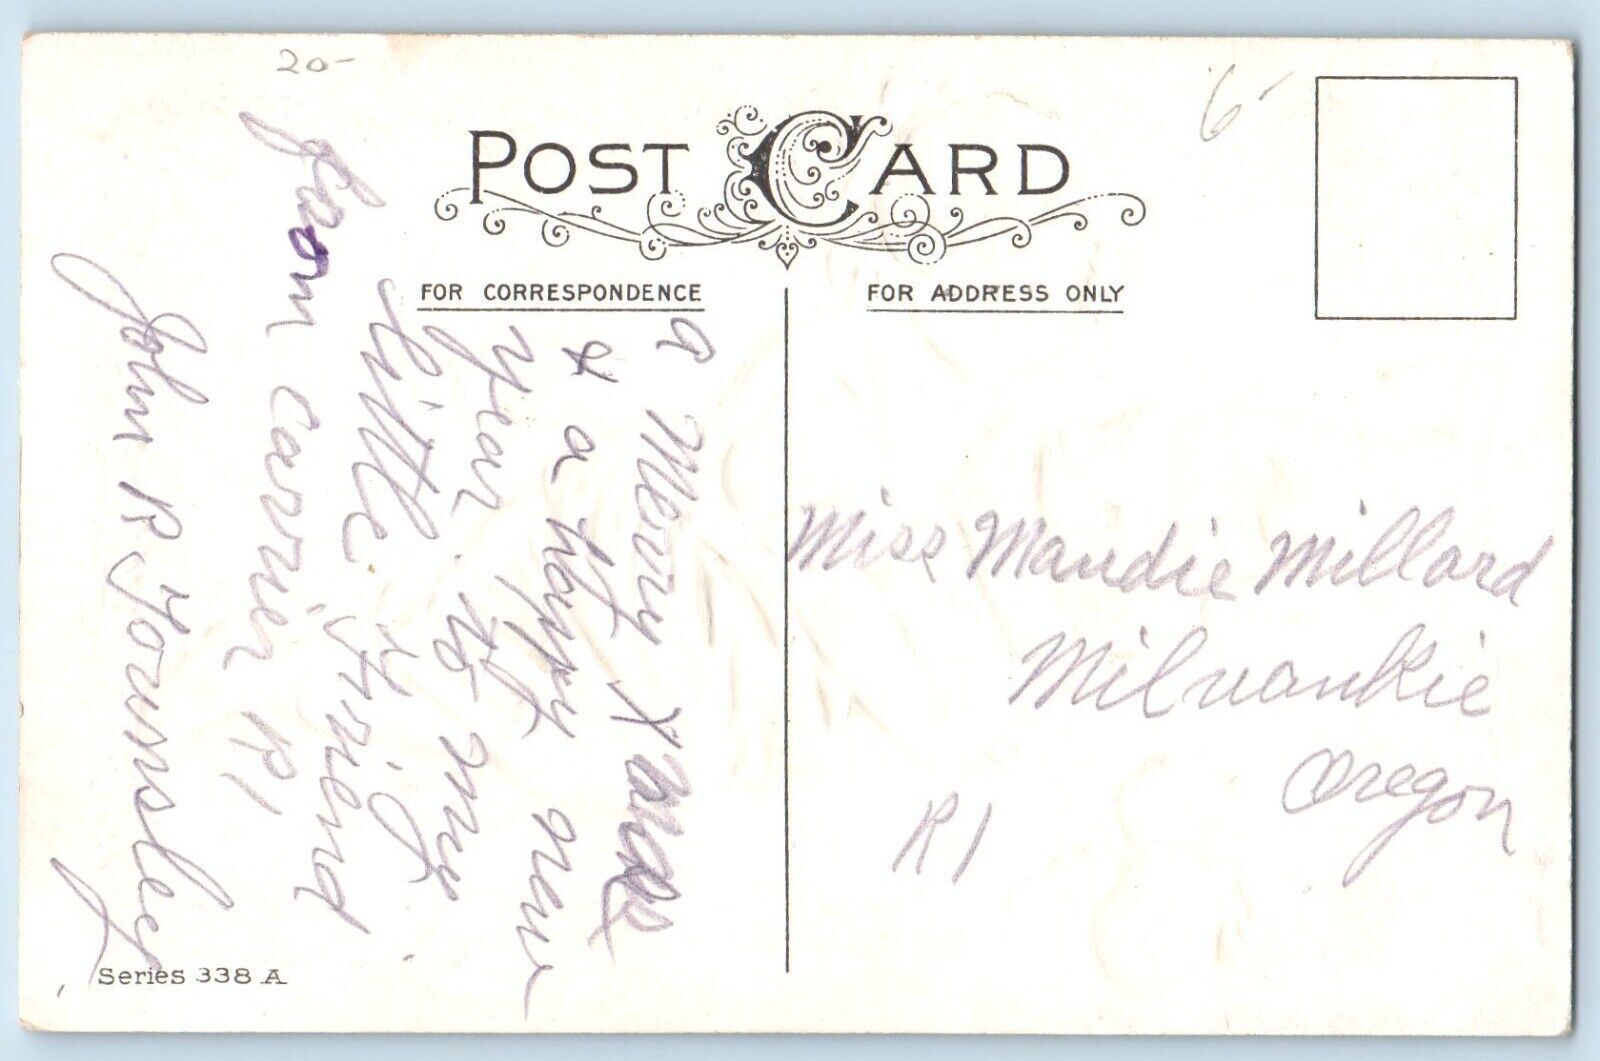 20-
6-
POST CARD
FOR CORRESPONDENCE
FOR ADDRESS ONLY
a Merry Xmas
& a happy new
year to my
little friend
from carrier R1
John R Yoursley
Miss Maudie Millard
Milwaukie
Oregon
R1
Series 338 A